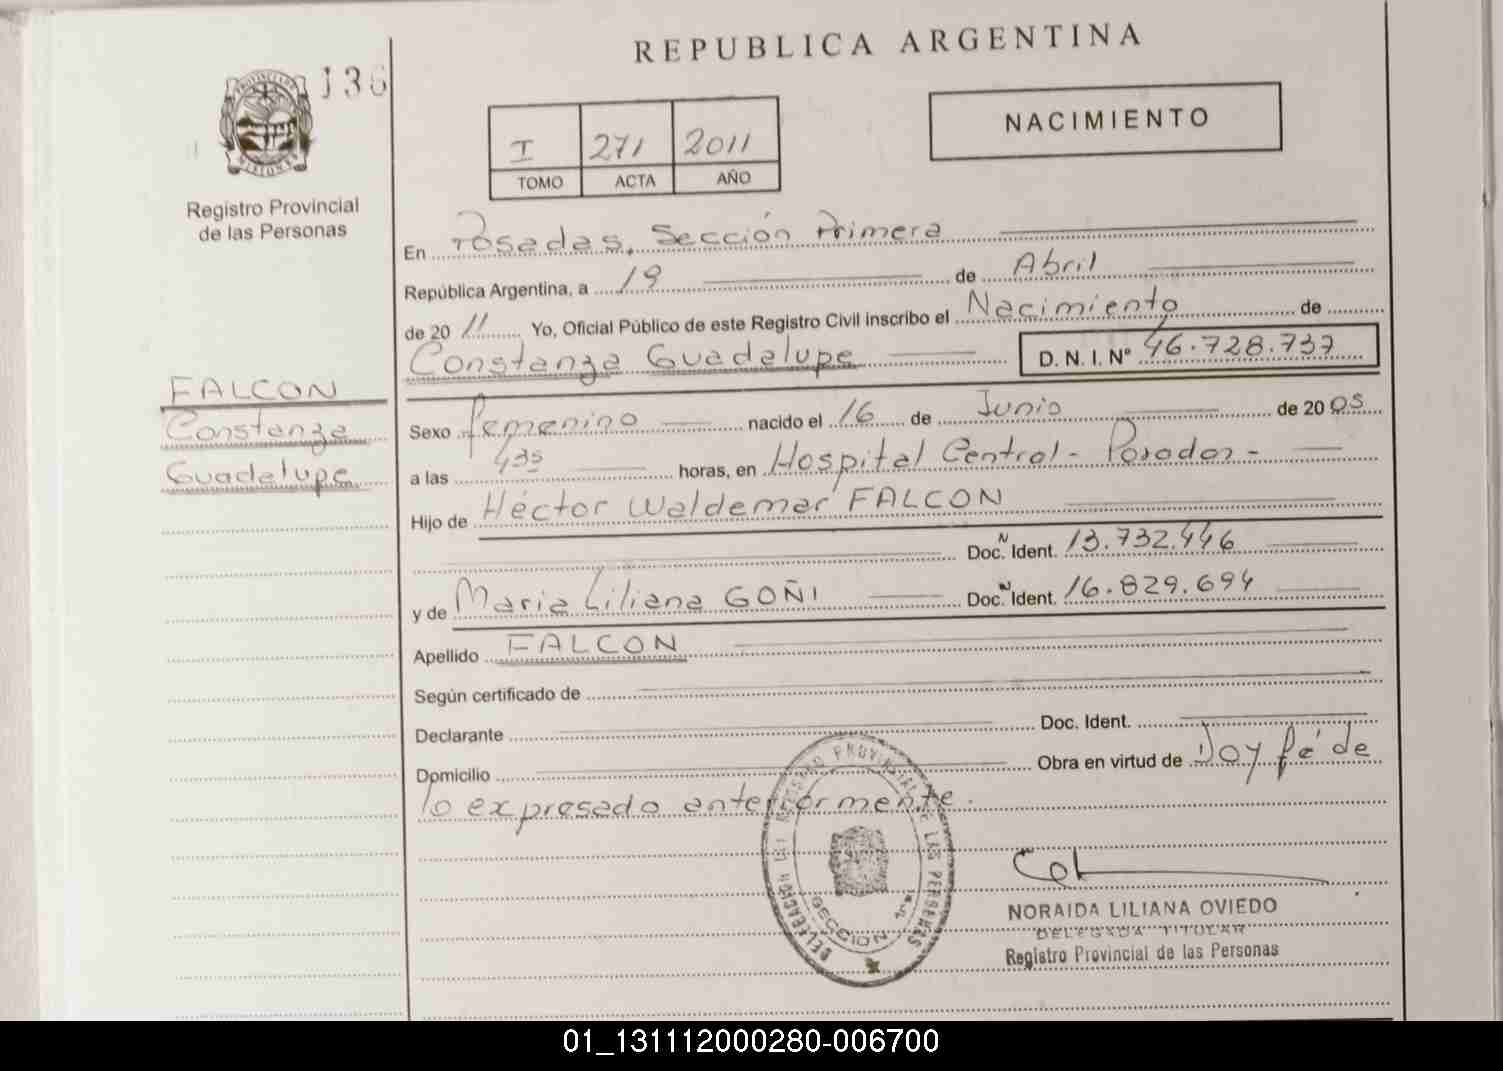 REPUBLICA ARGENTINA
136
I 271 2011
TOMO ACTA AÑO
NACIMIENTO
Registro Provincial
de las Personas
En Posadas, Sección Primera
República Argentina, a 19 de Abril
de 2011 Yo, Oficial Público de este Registro Civil inscribo el Nacimiento de
Constanza Guadalupe D. N. I. Nº 46.728.737
FALCON
Constanza
Guadalupe
Sexo femenino nacido el 16 de Junio de 2005
a las 435 horas, en Hospital Central - Posadas -
Hijo de Héctor Waldemar FALCON
Doc. Ident. 13.732.446
y de Maria Liliana GOÑI Doc. Ident. 16.829.694
Apellido FALCON
Según certificado de
Declarante Doc. Ident.
Domicilio Obra en virtud de Doy fé de
lo expresado anteriormente.
DELEGACION DEL REGISTRO PROVINCIAL DE LAS PERSONAS
SECCION 1ª
NORAIDA LILIANA OVIEDO
DELEGADA TITULAR
Registro Provincial de las Personas
01_131112000280-006700